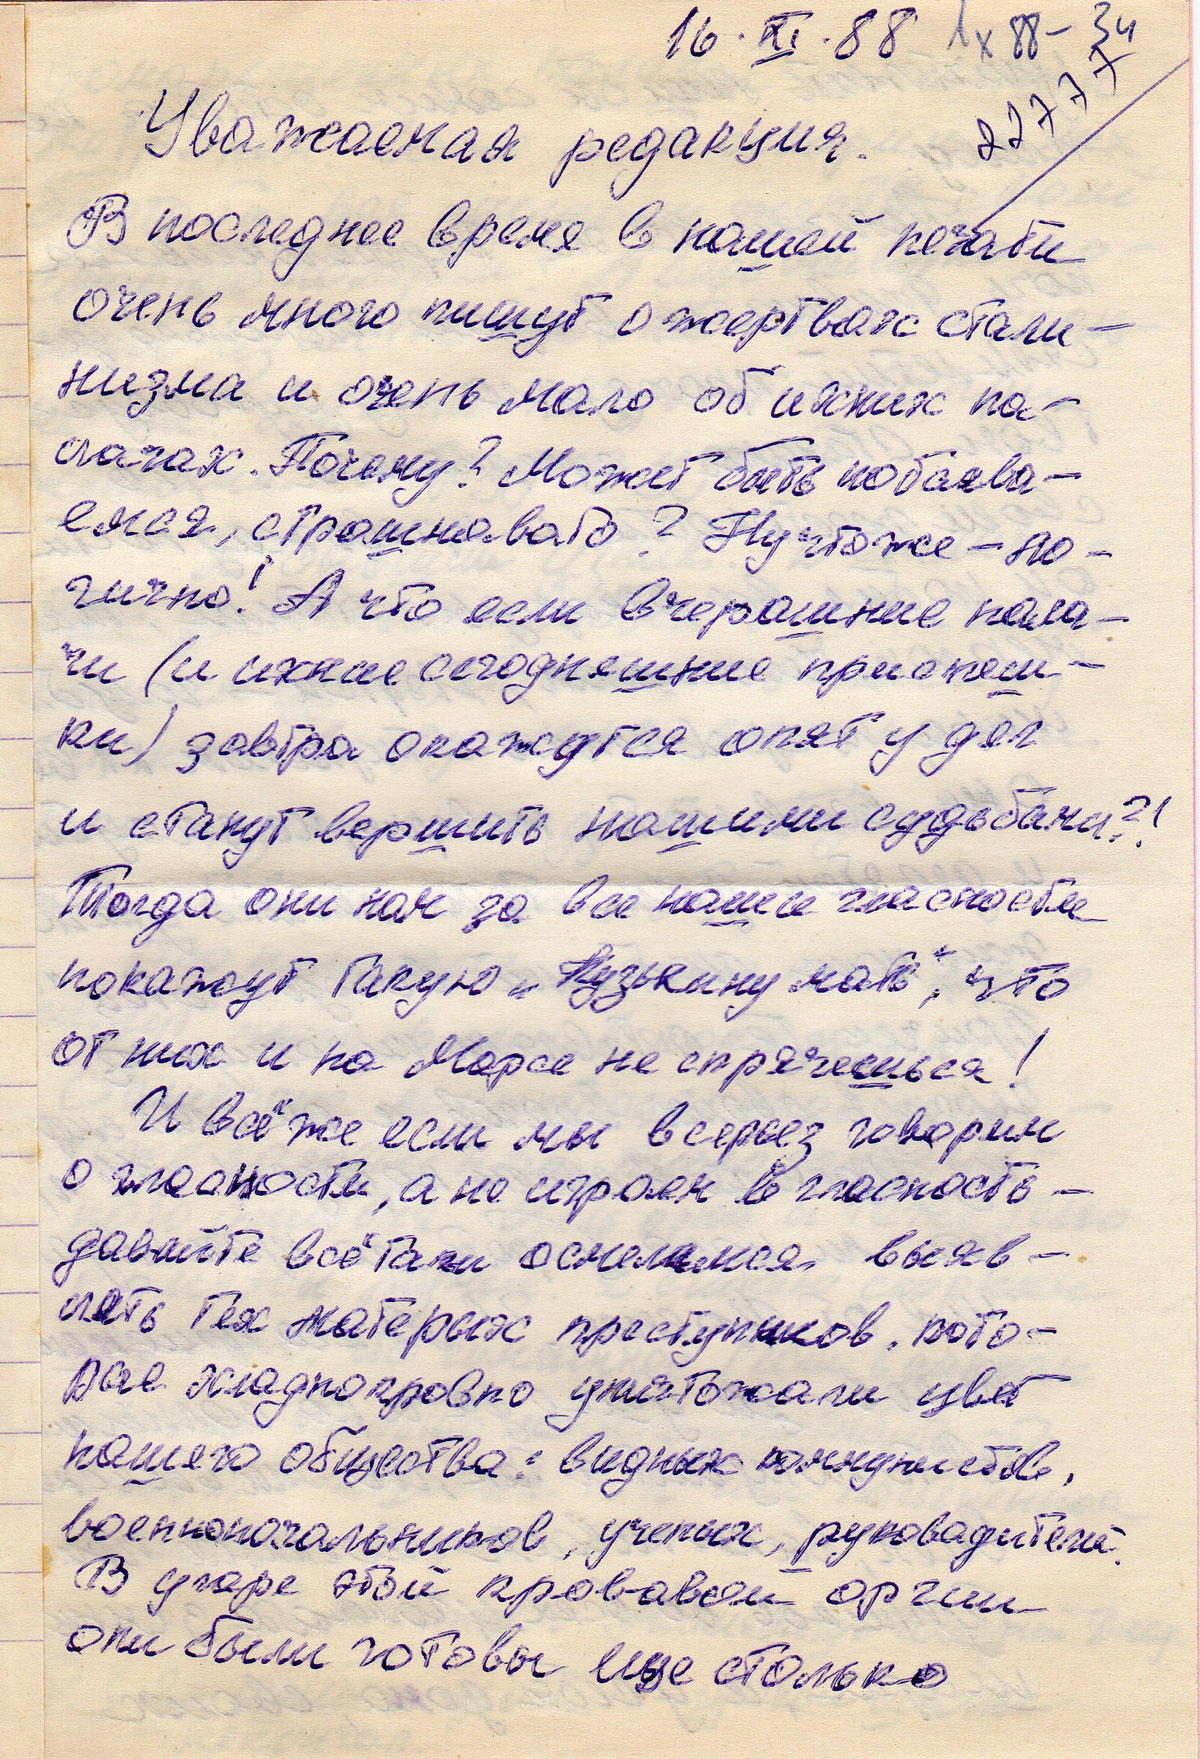 16.XI.88 1x88-34
22777
Уважаемая редакция.
В последнее время в нашей печати
очень много пишут о жертвах стали-
низма и очень мало об ихних па-
лачах. Почему? Может быть побаива-
емся, страшневато? Ну что же - ло-
гично! А что если вчерашние пала-
чи (и ихние сегодняшние приспеш-
ки) завтра окажутся опять у дел
и станут вершить нашими судьбами?!
Тогда они нам за все наши гласности
покажут такую „Кузькину мать", что
от них и на Марсе не спрячешься!
И всё же если мы всерьез говорим
о гласности, а не играем в гласность -
давайте всё таки осмелимся выяв-
лять тех матерых преступников, кото-
рые хладнокровно унижтожали цвет
нашего общества: видных коммунистов,
военноначальников, ученых, руковадителей.
В угаре этой кровавой оргии
они были готовы еще столько